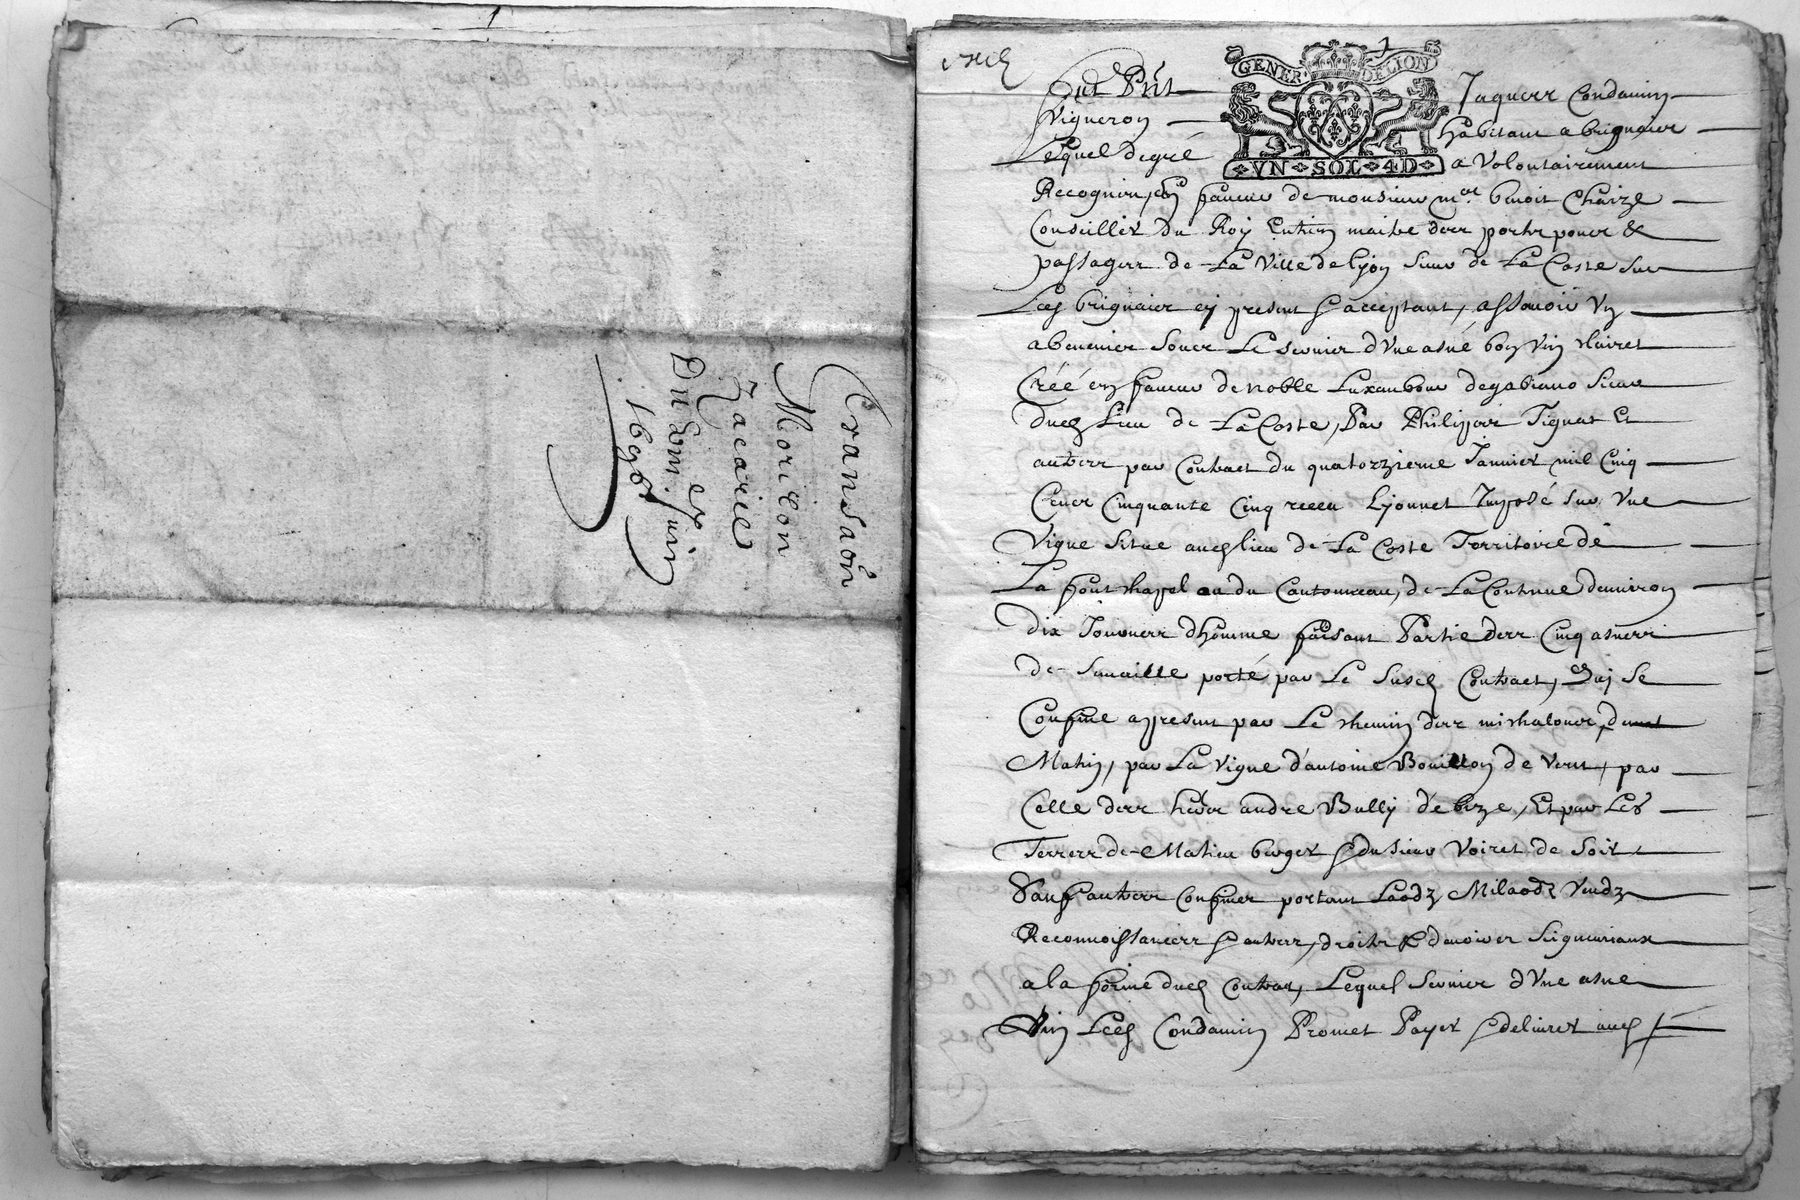 Transaõn
Morillon
Zacarie
Du 2 em.e juin
1696
GENER DELION
VN SOL 4D
fut Pnt Jaquerr Condamin
Vigneron habitant a brignaier
Lequel degré a Volontairement
Recognieu, En faueur de monsieur m.re benoit Chaize
Conseiller du Roy Entien maitre derr portr pontr &
passagerr de La Ville de lyon sieur de La Coste sur
Led brignaier cy present & acceptant, assauoir Vn
abeneuier souer Le seruier d'Vne asné bon Vin clairet
Créé en faueur de noble Luxanbour degabiano sieur
dud Lieu de La Coste, Par Philiperr Tignat Et
auterr par Contract du quatorzieme Januier mil Cinq
Cener Cinquante Cinq receu Lyonnet Imposé sur Vne
Vigne Situe aud lieu de La Coste Territoire de
La font chapel ou du Cantonneau, de La Contenue denuiron
dix Jouuerr dhomme faisant Partie derr Cinq asnerr
de semaille porté par Le Susd Contract, Qui se
Confine apresent par Le chemin derr michalouer, de
Matin, par La Vigne d'antoine Bouillon de Vent, par
Celle derr heoir andre Bully de bize, Et par Les
Terrerr de Matieu berger & du sieur Voiret de Soir
Sauf auterr Confiner portant Laodz Milaodz Vendz
Reconnoissancerr & auterr, droitr & deuoirer Seigneuriaux
a la forme dud Contrat, Lequel seruier d'Vne asné
Vin Led Condamin Promet Payer & deliurer aud